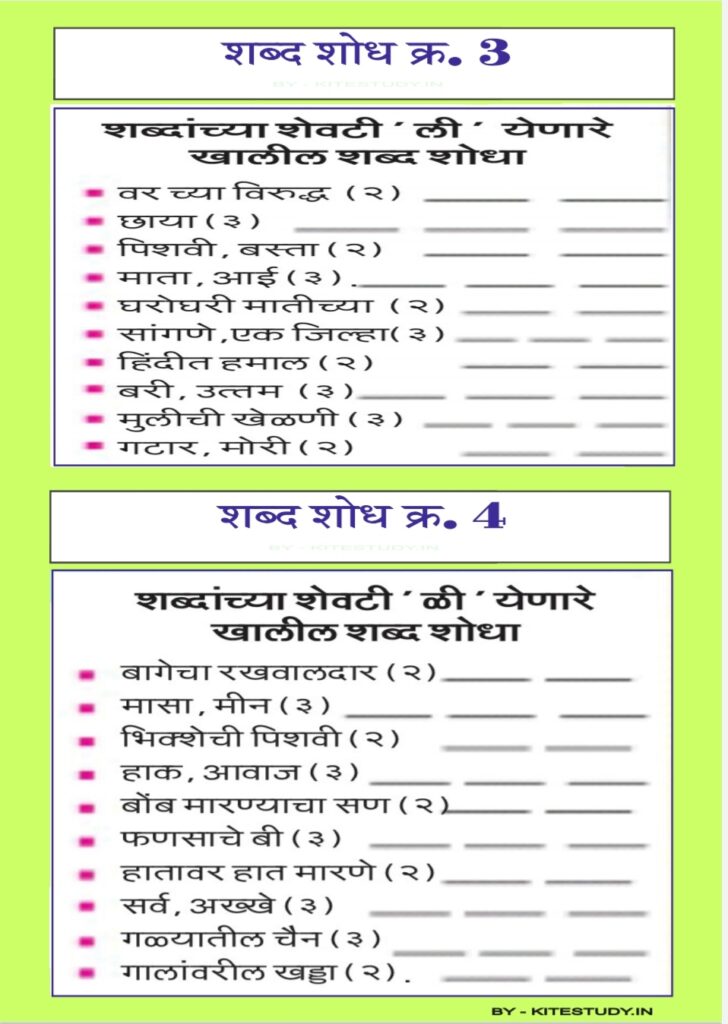 शब्द शोध क्र. 3
BY - KITESTUDY.IN
शब्दांच्या शेवटी ' ली ' येणारे
खालील शब्द शोधा
वर च्या विरुद्ध (२)
छाया (३)
पिशवी, बस्ता (२)
माता, आई (३).
घरोघरी मातीच्या (२)
सांगणे,एक जिल्हा(३)
हिंदीत हमाल (२)
बरी, उत्तम (३)
मुलीची खेळणी (३)
गटार, मोरी (२)
शब्द शोध क्र. 4
BY - KITESTUDY.IN
शब्दांच्या शेवटी ' ळी ' येणारे
खालील शब्द शोधा
बागेचा रखवालदार (२)
मासा, मीन (३)
भिक्शेची पिशवी (२)
हाक, आवाज (३)
बोंब मारण्याचा सण (२)
फणसाचे बी (३)
हातावर हात मारणे (२)
सर्व, अख्खे (३)
गळ्यातील चैन (३)
गालांवरील खड्डा (२).
BY - KITESTUDY.IN